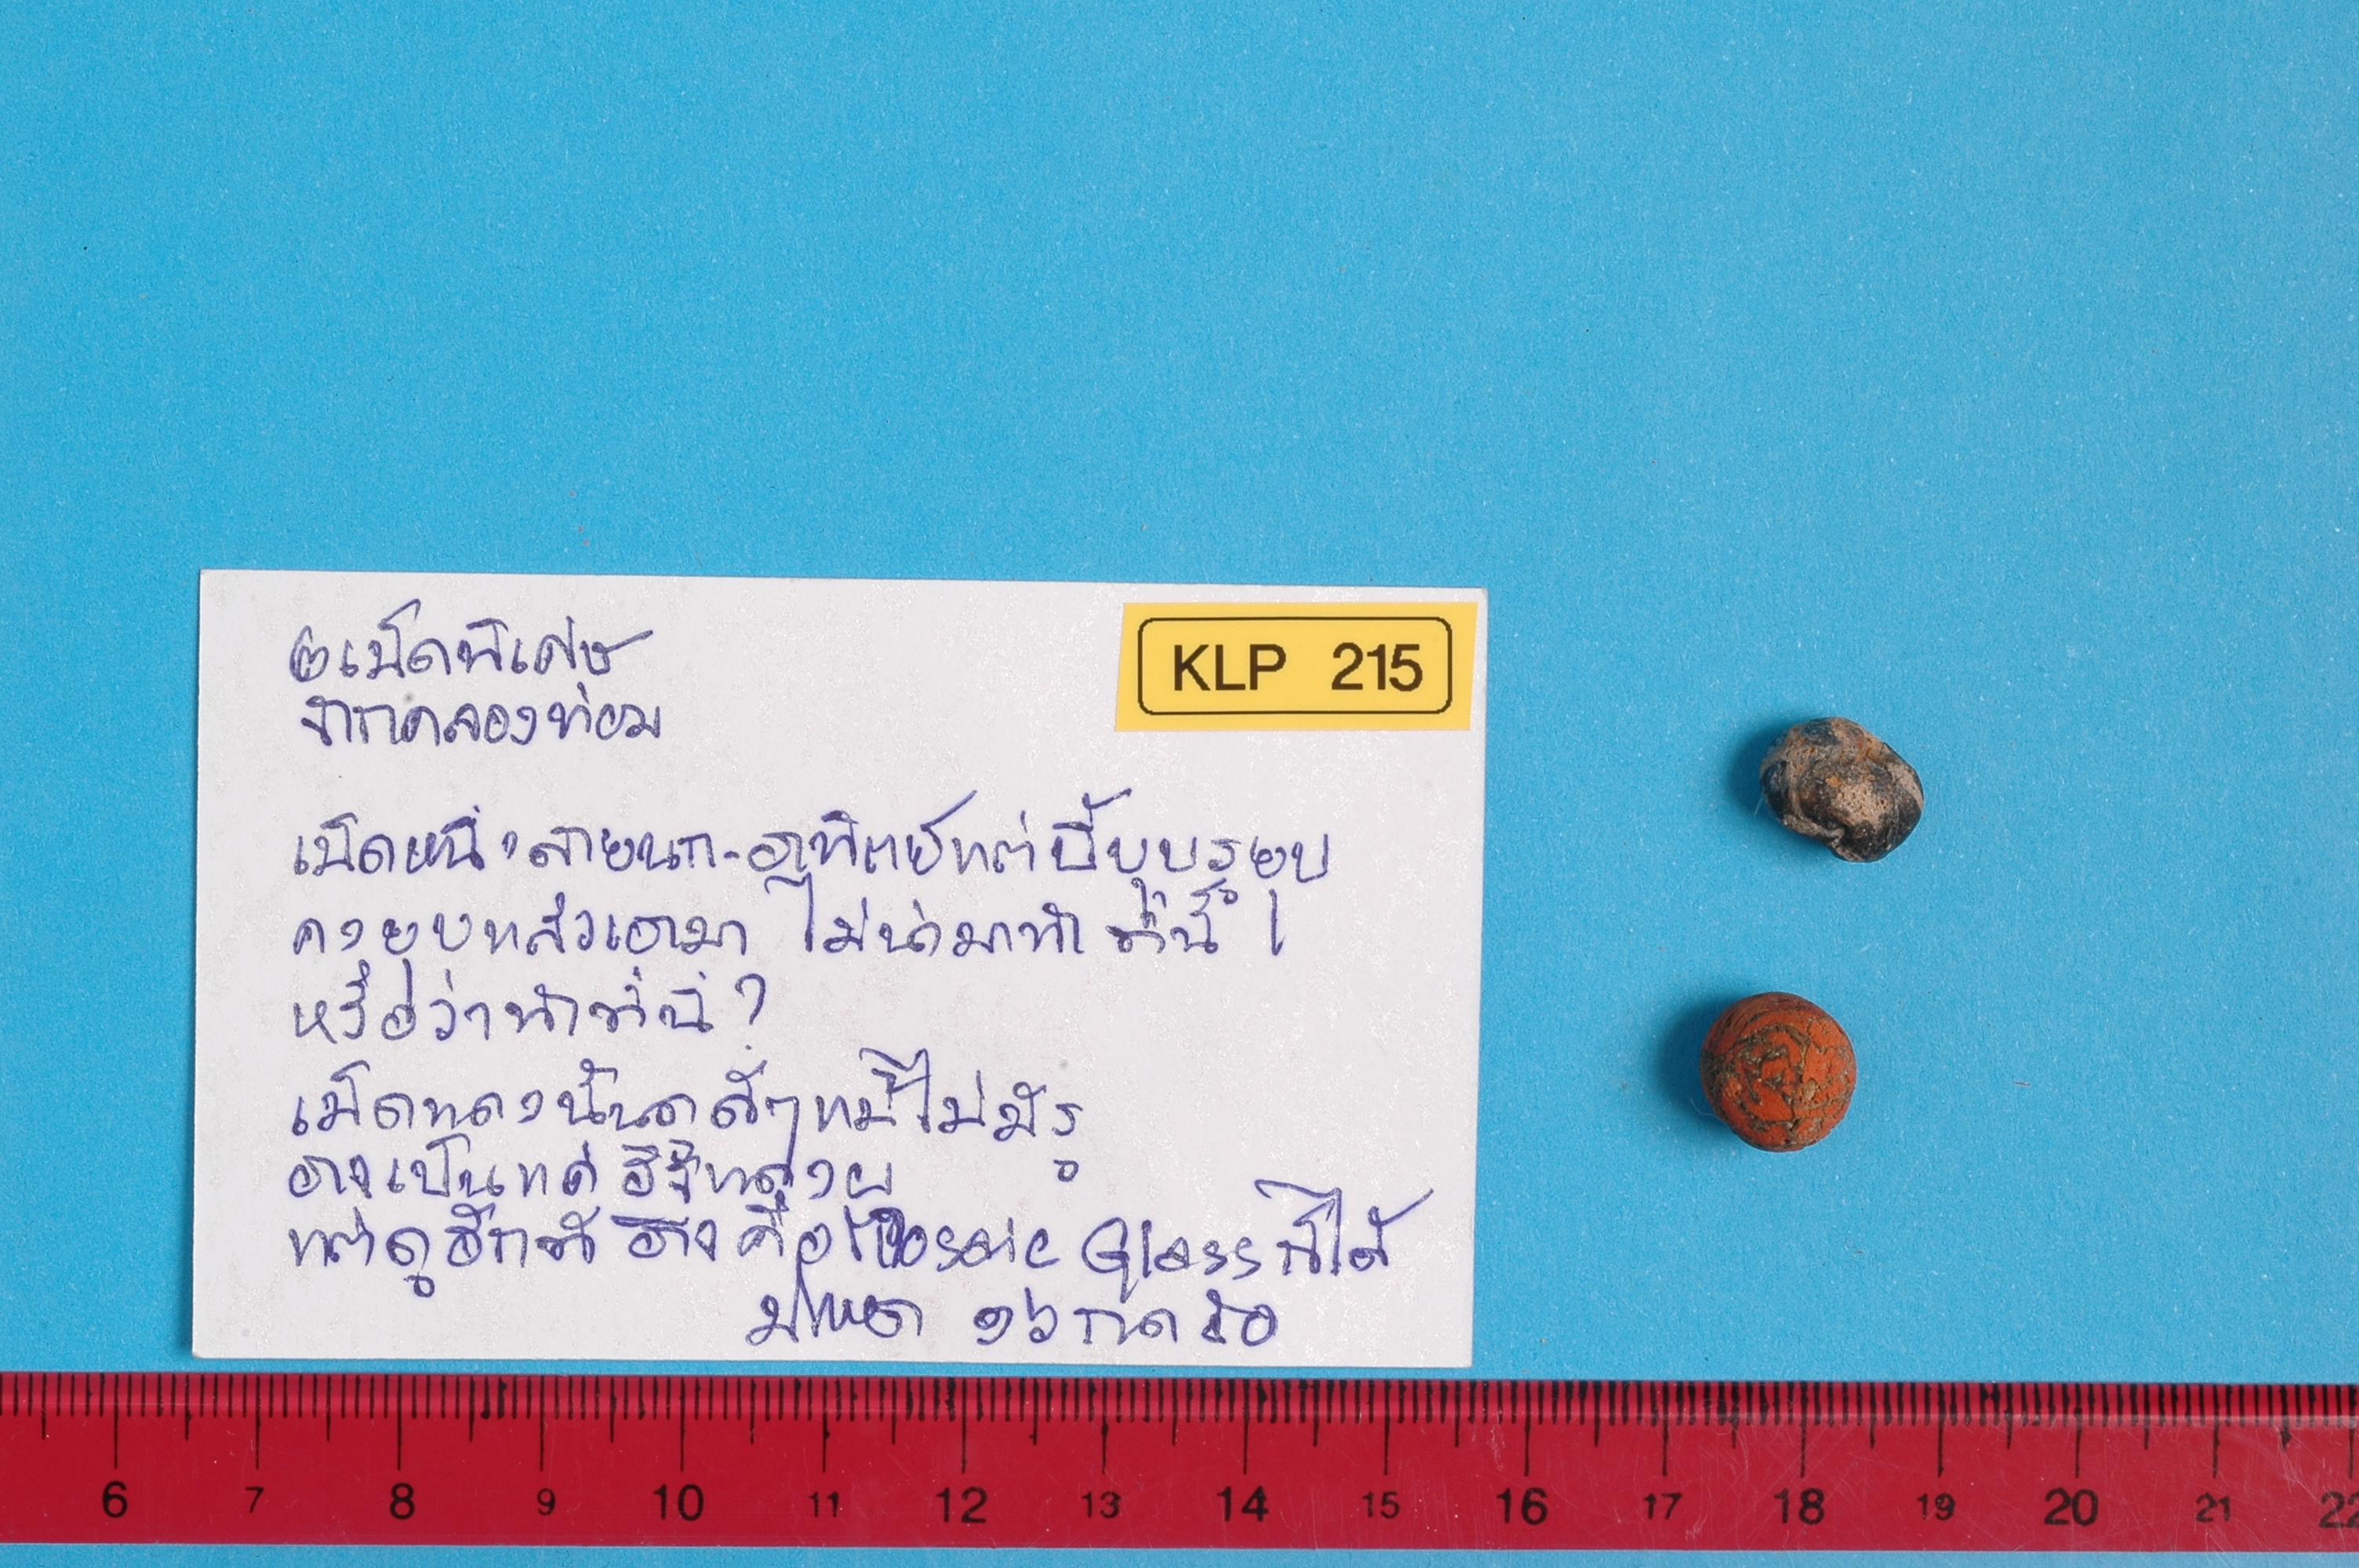 ๒เม็ดพิเศษ
จากคลองท่อม
KLP 215
เม็ดหนึ่งลายนก-อาทิตย์แต่บี้บุบรูยุบ
คงยุบแล้วเอามา ไม่น่ามาทำที่นี่ !
หรือว่าทำที่นี่ ?
เม็ดแดงนั้นคล้ายๆ แต่ไม่มีรู
อาจเป็นแค่
แต่ดูอีกที อาจคือ Mosaic Glass ก็ได้
๑๖ กค ๕๐
6 7 8 9 10 11 12 13 14 15 16 17 18 19 20 21 22